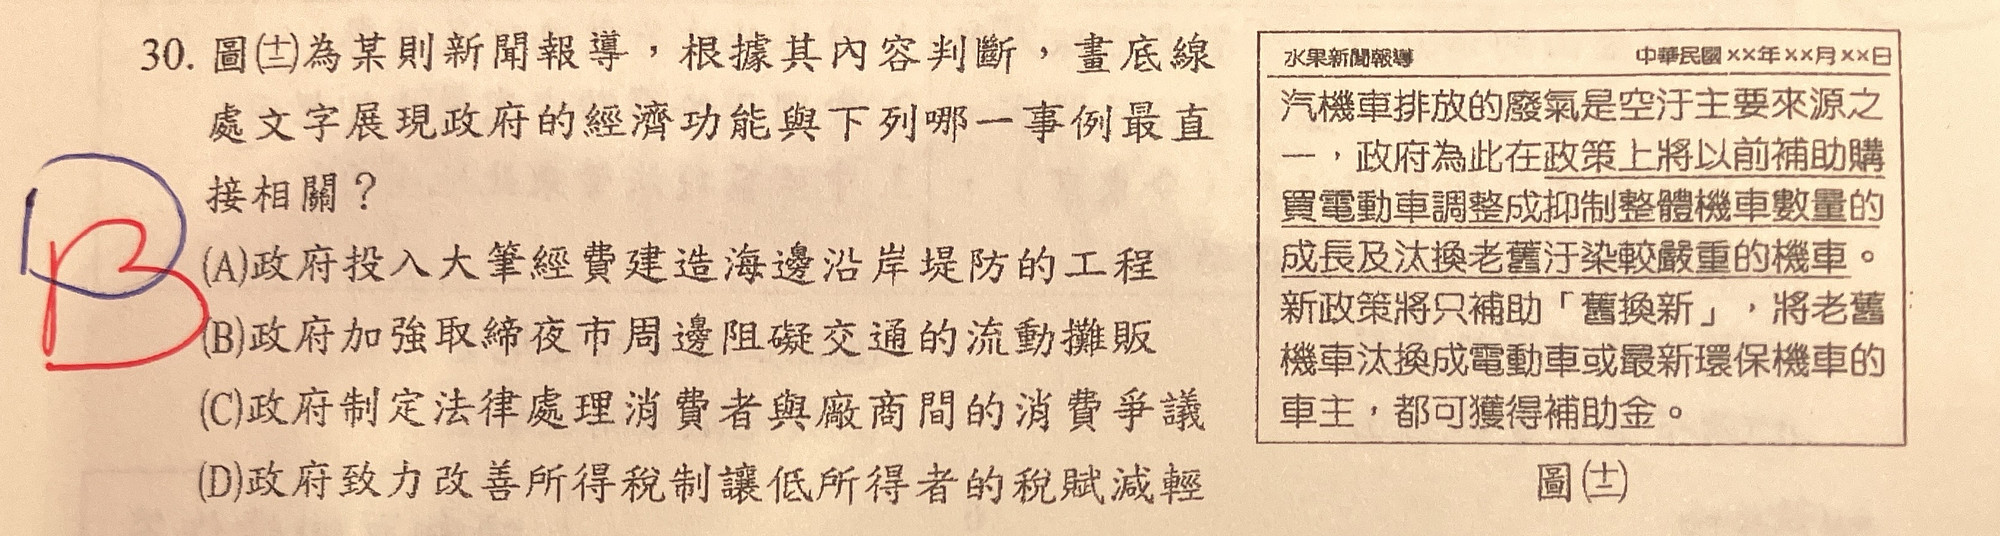 30. 圖㈩為某則新聞報導，根據其內容判斷，畫底線
處文字展現政府的經濟功能與下列哪一事例最直
接相關？
(A)政府投入大筆經費建造海邊沿岸堤防的工程
(B)政府加強取締夜市周邊阻礙交通的流動攤販
(C)政府制定法律處理消費者與廠商間的消費爭議
(D)政府致力改善所得稅制讓低所得者的稅賦減輕
D
B
水果新聞報導 中華民國××年××月××日
汽機車排放的廢氣是空汙主要來源之
一，政府為此在政策上將以前補助購
買電動車調整成抑制整體機車數量的
成長及汰換老舊汙染較嚴重的機車。
新政策將只補助「舊換新」，將老舊
機車汰換成電動車或最新環保機車的
車主，都可獲得補助金。
圖(十二)